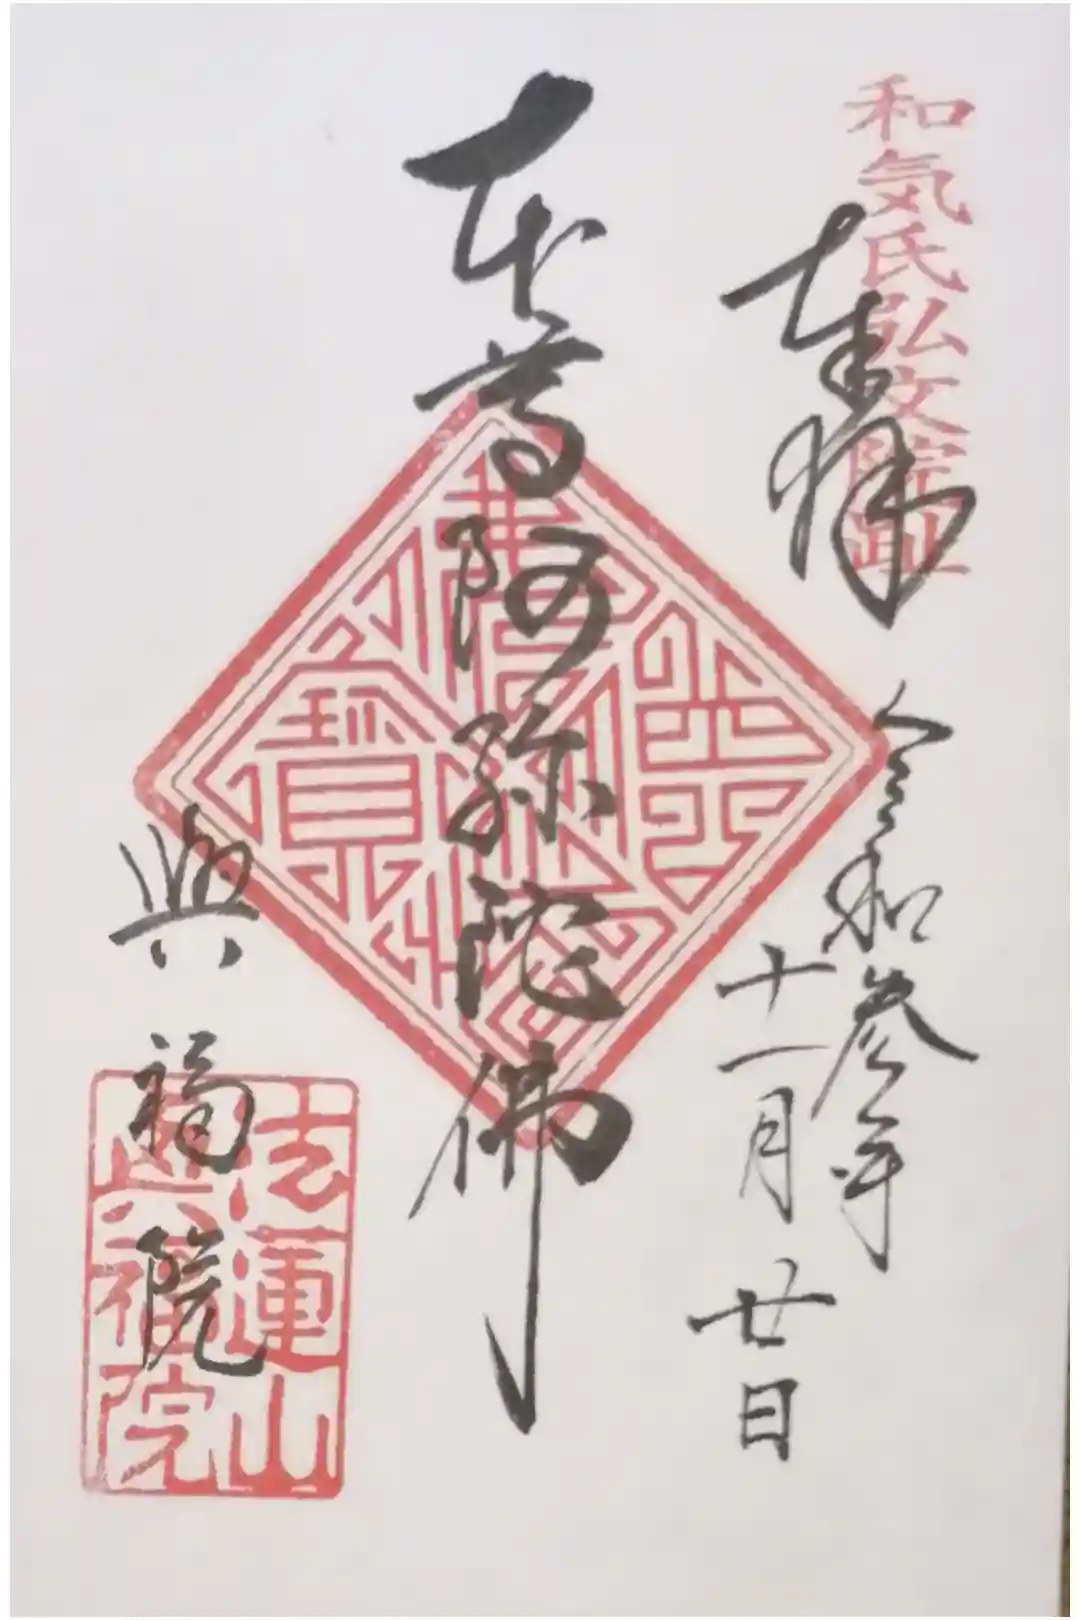 和気氏弘文院址
奉拝
令和参年
十一月廿日
本尊阿弥陀佛
佛法僧寶
興福院
法蓮山
興福院